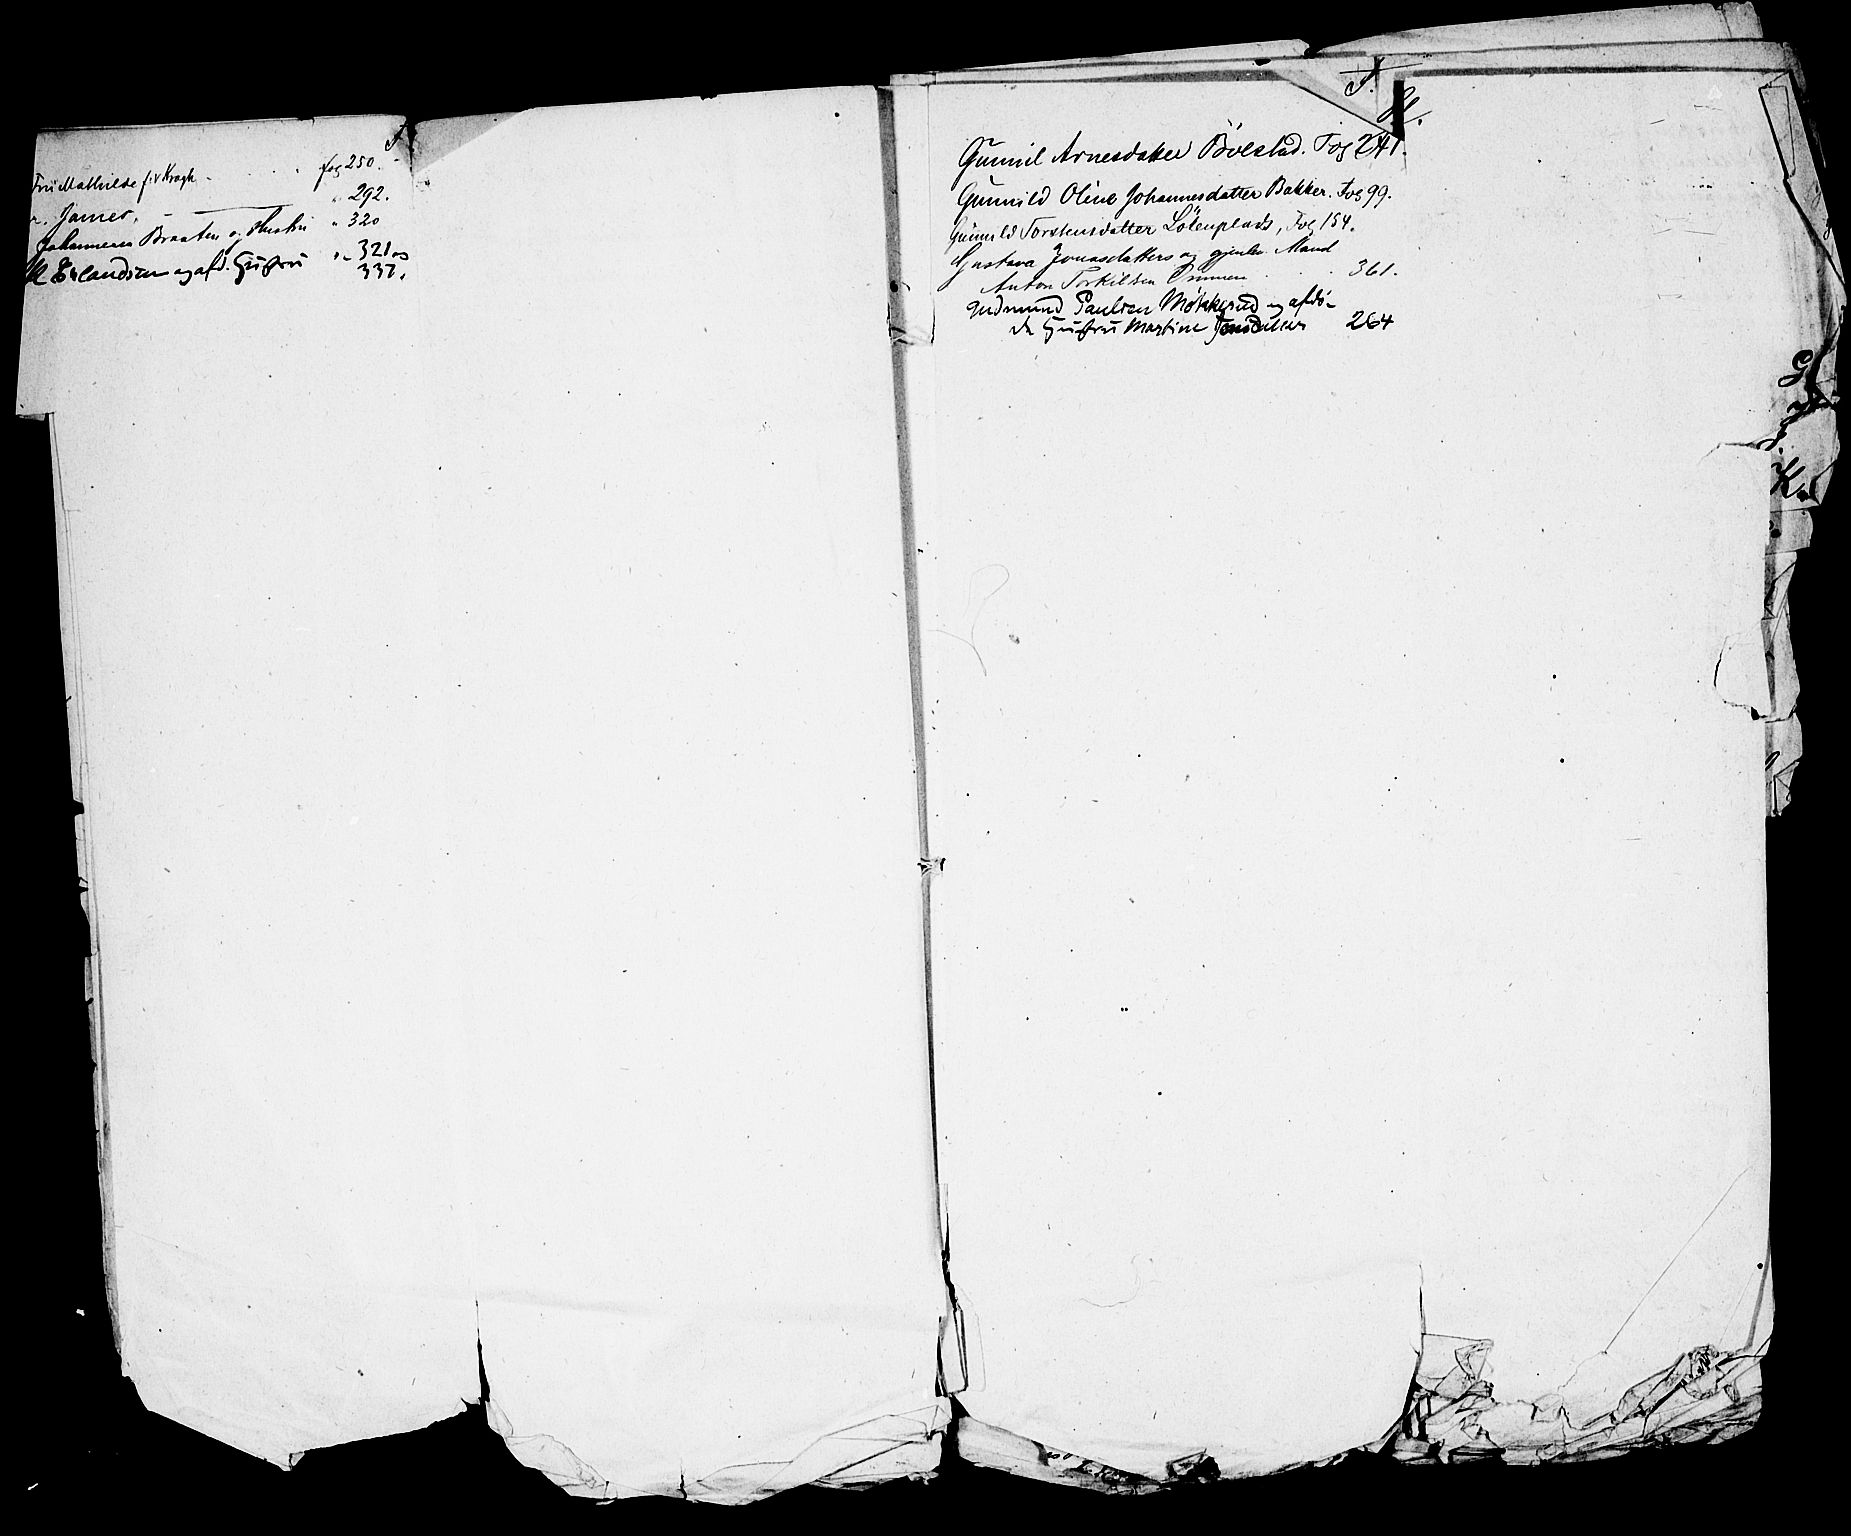 F
Fru Mathilde f. v Kragh fog 250.
" 292.
James,
Johannesen Braaten og Hustru " 320
Erlandsen og afd. Hustru " 321 og
337.
F.
H.
Gunnil Arnesdatter Bölstad. Fog 241.
Gunnild Oline Johannesdatter Bakker. Fog 99.
Gunnild Torstensdatter Lökenplads, Fog 154.
Gustava Jonasdatters og gjenlev. Mand
Anton Torkildsen 361.
Gudmund Paulsen Mökkerud og afdö-
de Hustru Martine 264
G
I.
K.